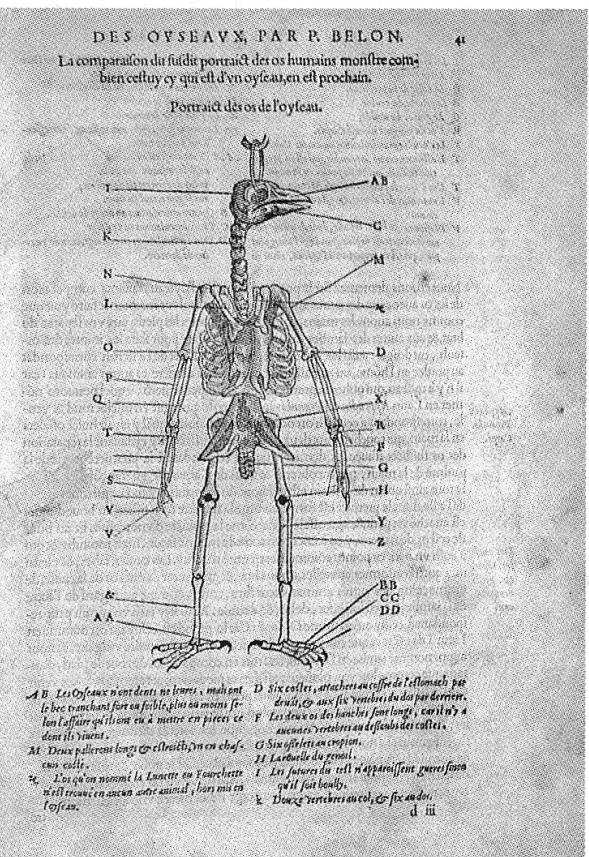 DES OYSEAVX, PAR P. BELON. 41
La comparaison du susdit portraict des os humains monstre com-
bien cestuy cy qui est d'vn oyseau, en est prochain.
Portraict des os de l'oyseau.
I
K
N
L
O
P
Q
T
S
V
V
&
AA
AB
C
M
D
X
R
F
G
H
Y
Z
BB
CC
DD
A B Les Oyseaux n'ont dents ne leures, mais ont
le bec tranchant fort ou foible, plus ou moins se-
lon l'affaire qu'ils ont eu à mettre en pieces ce
dont ils viuent.
M Deux pallerons longs & estroicts, vn en chas-
cun costé.
L'os qu'on nommé la Lunette ou Fourchette
n'est trouué en aucun autre animal, hors mis en
l'oyseau.
D Six costes, attachees au coffre de l'estomach par
deuāt, & aux six vertebres du dos par derriere.
F Les deux os des hanches sont longs, car il n'y a
aucunes vertebres au dessoubs des costes.
G Six osselets au cropion.
H La rouelle du genoil.
I Les sutures du test n'apparoissent gueres sinon
qu'il soit boully.
k Douze vertebres au col, & six au dos.
d iii